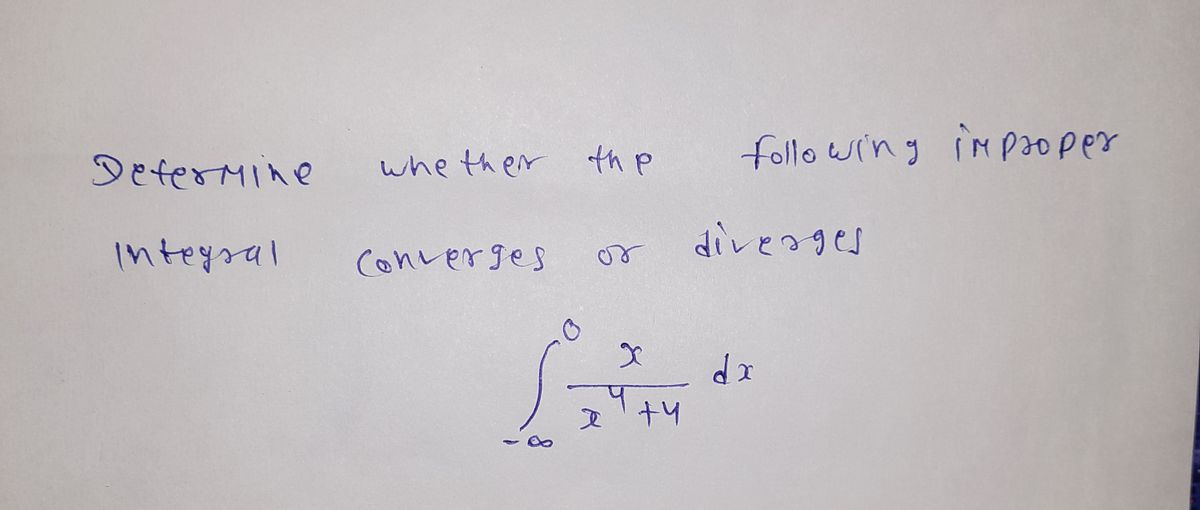 Determine whether the following improper
Integral converges or diverges
∫_{-∞}^{0} x/(x^4+4) dx